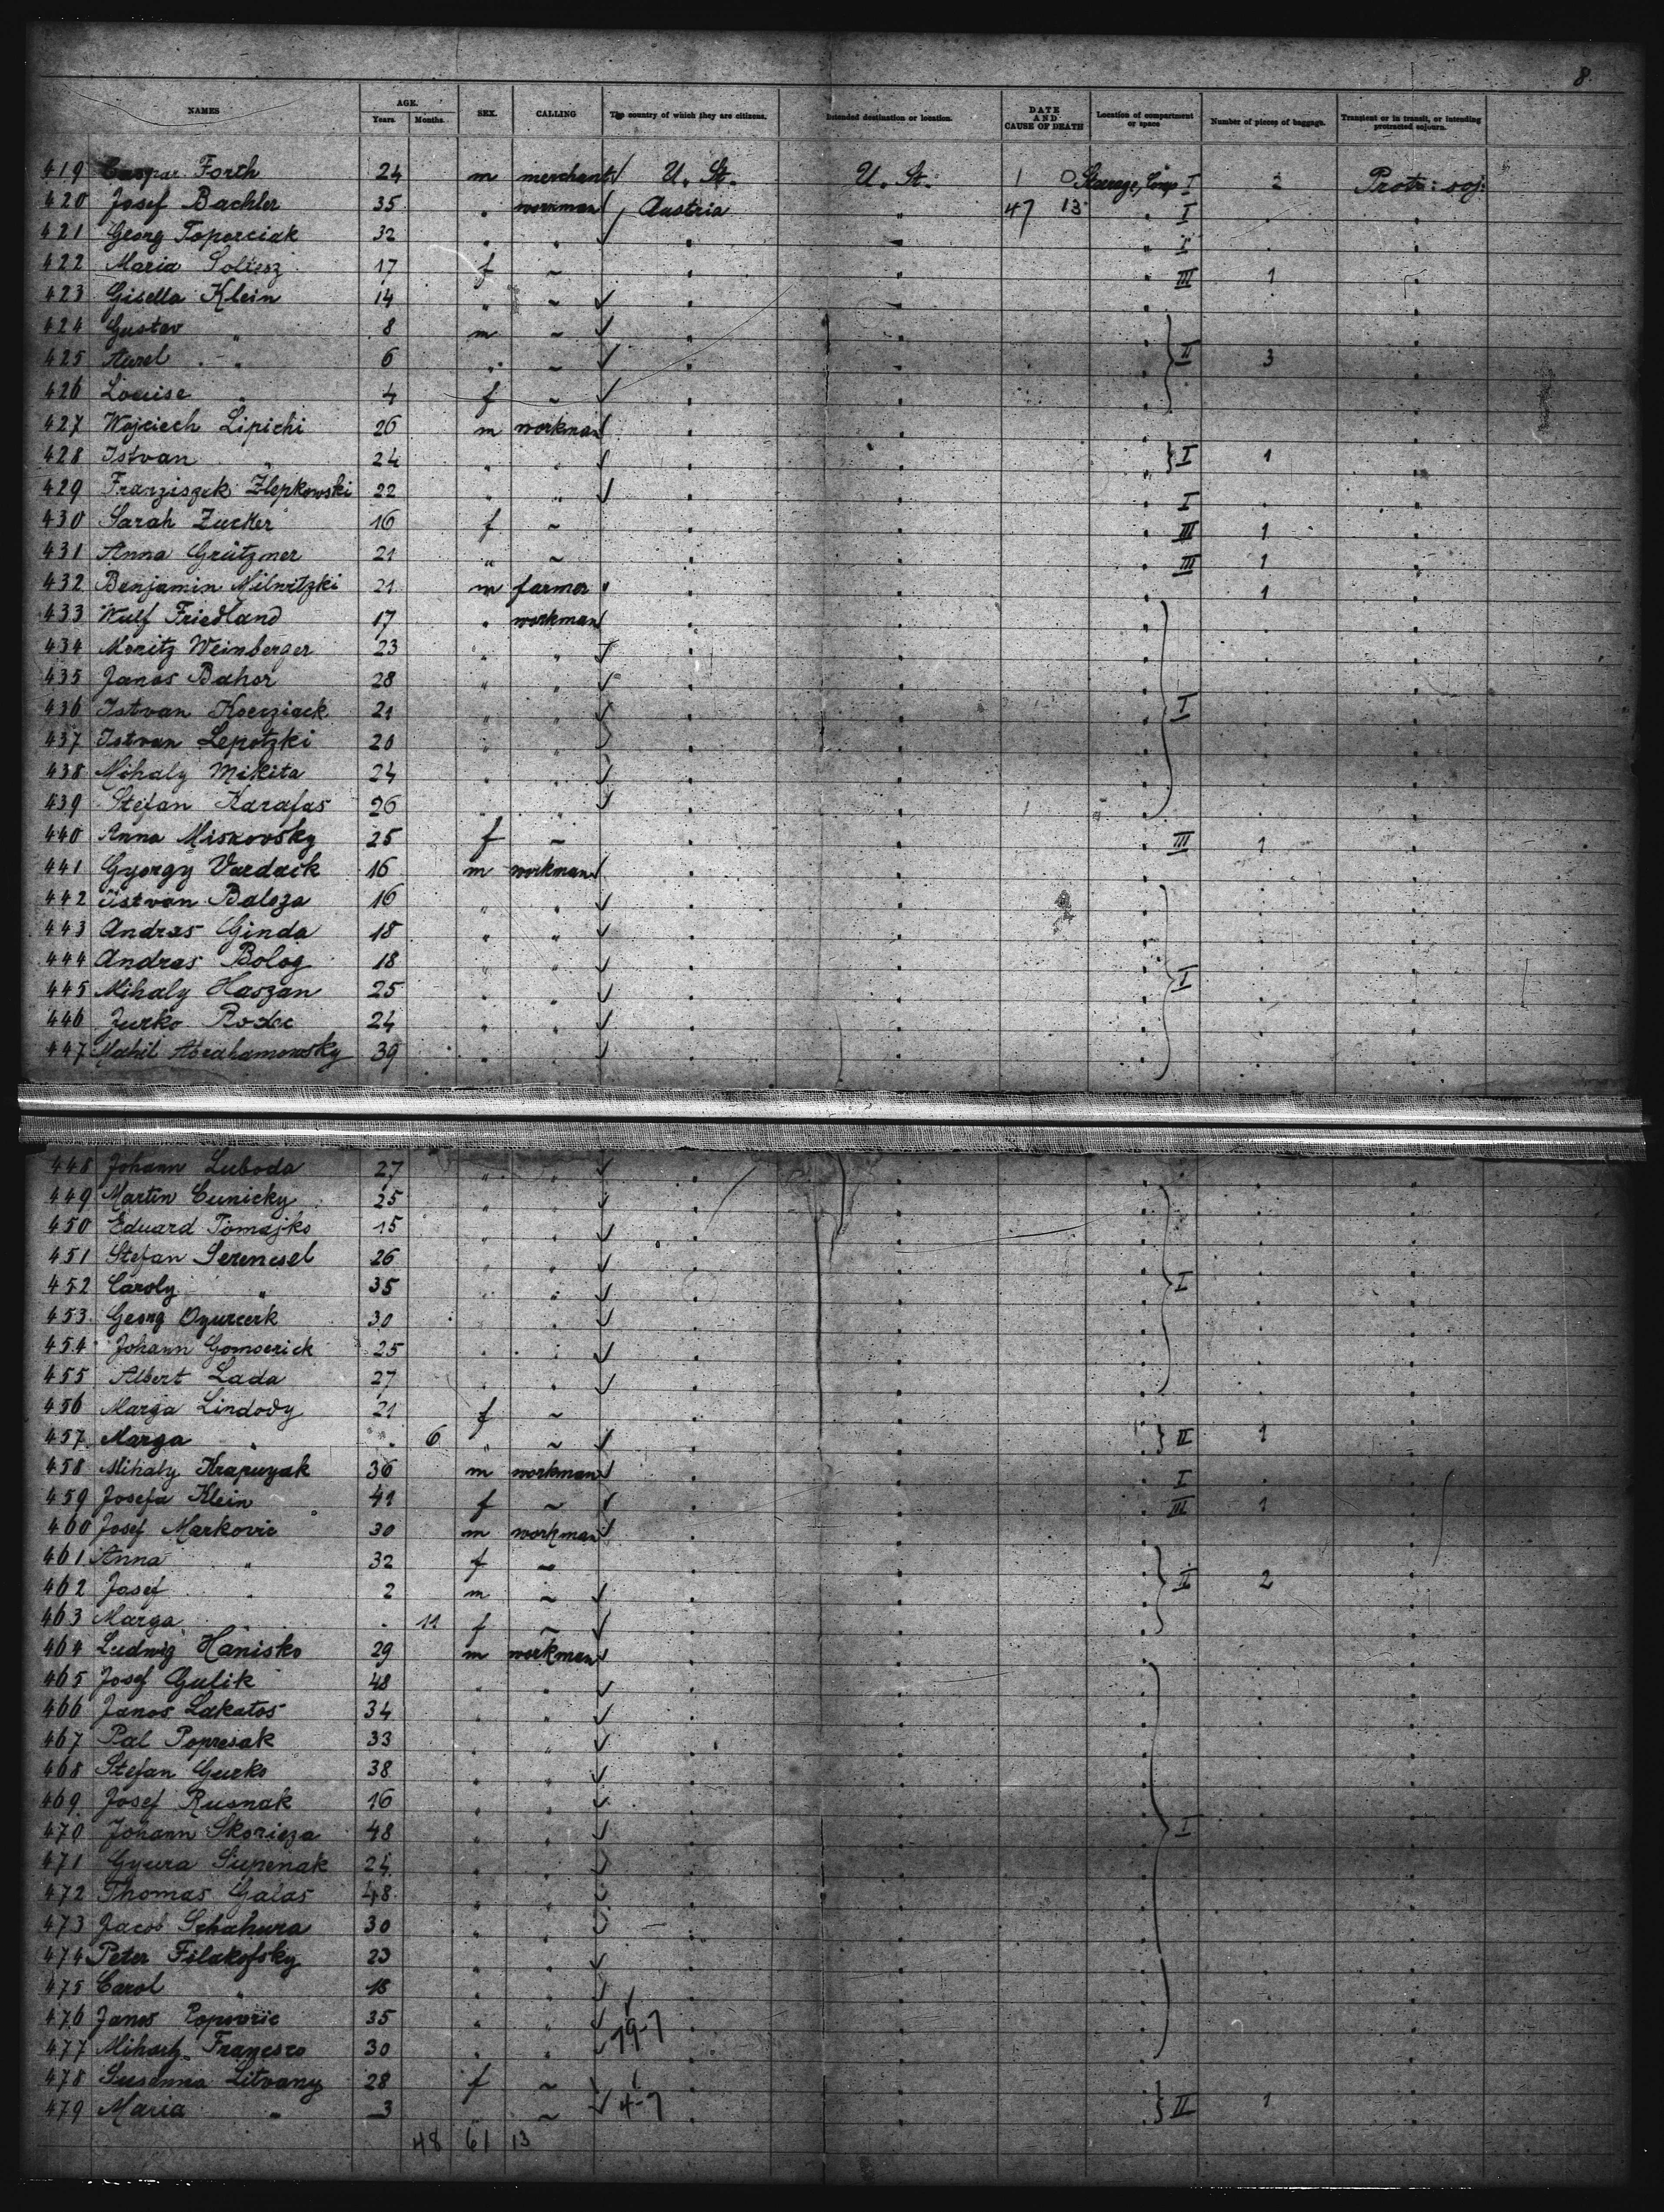 8.
NAMES AGE. Years. Months. SEX. CALLING The country of which they are citizens. Intended destination or location. DATE AND CAUSE OF DEATH Location of compartment or space Number of pieces of baggage. Transient or in transit, or intending protracted sojourn.
419 Caspar Forth 24 m merchant U. St. U. St. 1 0 Steerage, Comp I 2 Protr: soj:
420 Josef Bachler 35 " workman Austria " 47 13 " I " "
421 Georg Toporciak 32 " " " " " I " "
422 Maria Soltesz 17 f ~ " " " III 1 "
423 Gisella Klein 14 " ~ " " "
424 Gustav " 8 m ~ " " " "
425 Aurel " 6 " ~ " " " II 3 "
426 Louise " 4 f ~ " " " "
427 Wojciech Lipichi 26 m workman " " " "
428 Istvan " 24 " " " " " I 1 "
429 Franziszek Zlepkowski 22 " " " " " I " "
430 Sarah Zucker 16 f ~ " " " III 1 "
431 Anna Grützner 21 " ~ " " " III 1 "
432 Benjamin Milnitzki 21 m farmer " " " 1 "
433 Wulf Friedland 17 " workman " " " " "
434 Moritz Weinberger 23 " " " " " " "
435 Janos Bahor 28 " " " " " " "
436 Istvan Koerziack 21 " " " " " I " "
437 Istvan Lepotzki 20 " " " " " " "
438 Mihaly Mikita 24 " " " " " " "
439 Stefan Karafas 26 " " " " " " "
440 Anna Miskovsky 25 f ~ " " " III 1 "
441 Gyorgy Vardzik 16 m workman " " " " "
442 Istvan Baloza 16 " " " " " " "
443 Andras Ginda 18 " " " " " " "
444 Andras Bolog 18 " " " " " " "
445 Mihaly Haszan 25 " " " " " I " "
446 Jurko Rodec 24 " " " " " " "
447 Mahil Abrahamowsky 39 " " " " " " "
448 Johann Luboda 27 " " " " " " "
449 Martin Cunicky 25 " " " " " " "
450 Eduard Tomajko 15 " " " " " " "
451 Stefan Serencsel 26 " " " " " " "
452 Caroly " 35 " " " " " I " "
453 Georg Ogurcerk 30 " " " " " " "
454 Johann Gomserick 25 " " " " " " "
455 Albert Lada 27 " " " " " " "
456 Marga Lindody 21 f ~ " " " "
457 Marga " " 6 " ~ " " " II 1 "
458 Mihaly Krapuyak 36 m workman " " " I " "
459 Josefa Klein 41 f ~ " " " III 1 "
460 Josef Markovic 30 m workman " " " "
461 Anna " 32 f ~ " " " "
462 Josef " 2 m ~ " " " II 2 "
463 Marga " " 11 f ~ " " " "
464 Ludwig Hanisko 29 m workman " " " " "
465 Josef Gulik 48 " " " " " " "
466 Janos Lakatos 34 " " " " " " "
467 Pal Popresak 33 " " " " " " "
468 Stefan Gurko 38 " " " " " " "
469 Josef Rusnak 16 " " " " " " "
470 Johann Skorieza 48 " " " " " I " "
471 Gyura Supenak 24 " " " " " " "
472 Thomas Galas 48 " " " " " " "
473 Jacob Schahura 30 " " " " " " "
474 Peter Filakofsky 23 " " " " " " "
475 Carol " 18 " " " " " " "
476 Janos Popovric 35 " " " " " " "
477 Mihaly Francsco 30 " " 19-7 " " " " "
478 Susanna Litvany 28 f ~ " " " "
479 Maria " 3 ~ 4-7 " " " II 1 "
48 61 13